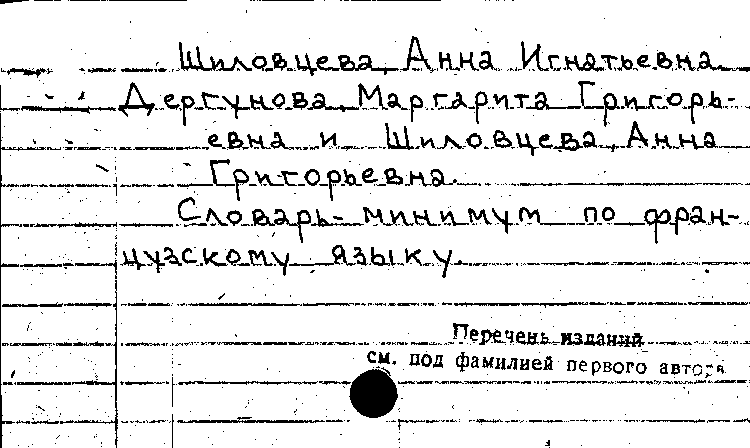 Шиловцева, Анна Игнатьевна.
Дергунова, Маргарита Григорь-
евна и Шиловцева, Анна
Григорьевна.
Словарь-минимум по фран-
цузскому языку.
Перечень изданий
см. под фамилией первого автора